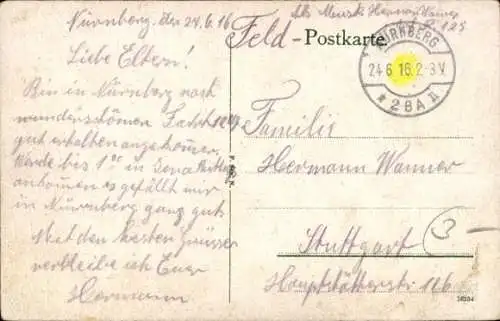 Nürnberg den 24.6.16
Liebe Eltern!
Bin in Nürnberg nach
wunderschöner
gut erhalten angekommen
werde bis 1 in
ankommen es gefällt mir
in Nürnberg ganz gut
Mit den besten Grüssen
verbleibe ich Euer
Hermann
Abs. Musk. Hermann Wanner
125
Feld-Postkarte
NÜRNBERG
24.6.16.2-3V.
* 2BA II
Familie
Hermann Wanner
3
Stuttgart
Hauptstätterstr. 116